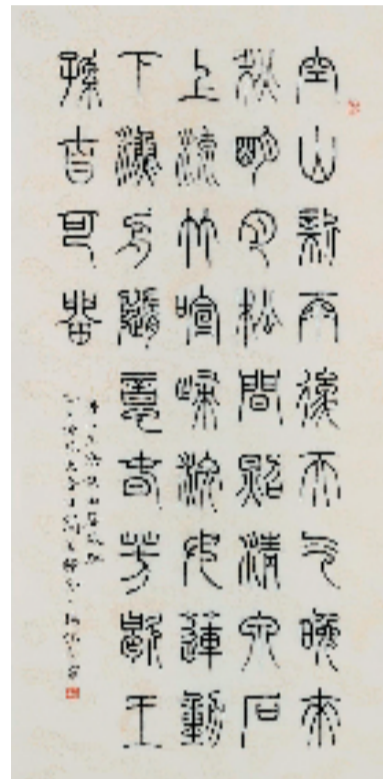 空山新雨後天气晚來
秋明月松間照清泉石
上流竹喧歸浣女蓮動
下漁舟隨意春芳歇王
孫自可留